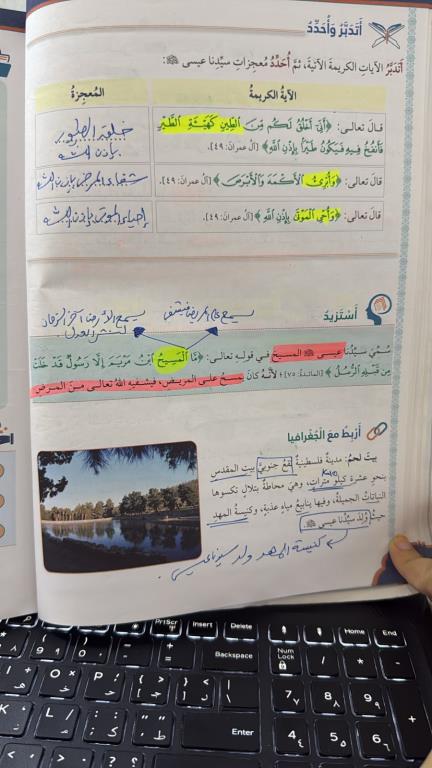 أَتَدَبَّرُ وَأُحَدِّدُ
أَتَدَبَّرُ الآياتِ الكريمةَ الآتيةَ، ثمَّ أُحَدِّدُ مُعجزاتِ سيِّدِنا عيسى ﷺ:
الآيةُ الكريمةُ
المُعجزةُ
قـالَ تعالـى: ﴿أَنِّي أَخْلُقُ لَكُم مِّنَ الطِّينِ كَهَيْئَةِ الطَّيْرِ
فَأَنفُخُ فِيهِ فَيَكُونُ طَيْرًا بِإِذْنِ اللَّهِ﴾ [آل عمران: ٤٩].
خلقه الطيور
بإذن الله
قالَ تعالـى: ﴿وَأُبْرِئُ الْأَكْمَهَ وَالْأَبْرَصَ﴾ [آل عمران: ٤٩].
شفاء المرضى بإذن الله
قالَ تعالـى: ﴿وَأُحْيِ الْمَوْتَىٰ بِإِذْنِ اللَّهِ﴾ [آل عمران: ٤٩].
إحياء الموتى بإذن الله
أَسْتَزيدُ
يمسح على المريض فيشفى
يمسح الأرض آخر الزمان
لنشر العدل
سُمِّيَ سَيِّدُنا عيسى ﷺ المسيحَ في قولِـهِ تعالـى: ﴿مَّا الْمَسِيحُ ابْنُ مَرْيَمَ إِلَّا رَسُولٌ قَدْ خَلَتْ
مِن قَبْلِهِ الرُّسُلُ﴾ [المائدة: ٧٥]؛ لأنَّهُ كانَ يمسحُ على المريضِ، فيشفيهِ اللهُ تعالى مِنَ المرضِ
أَرْبِطُ معَ الجُغرافيا
بيتُ لحم: مدينةٌ فلسطينيةٌ تقعُ جنوبيَّ بيتِ المقدسِ
بنحوِ عشرةِ كيلو متراتٍ، وهيَ محاطةٌ بتلالٍ تكسوها
Km
النباتاتُ الجميلةُ، وفيها ينابيعُ مياهٍ عذبةٍ، وكنيسةُ المهدِ
حيثُ وُلِدَ سيِّدُنا عيسى ﷺ.
كنيسة المهد ولد سيدنا عيسى
PrtScr
Insert
Delete
Home
End
Backspace
Num
Lock
Enter